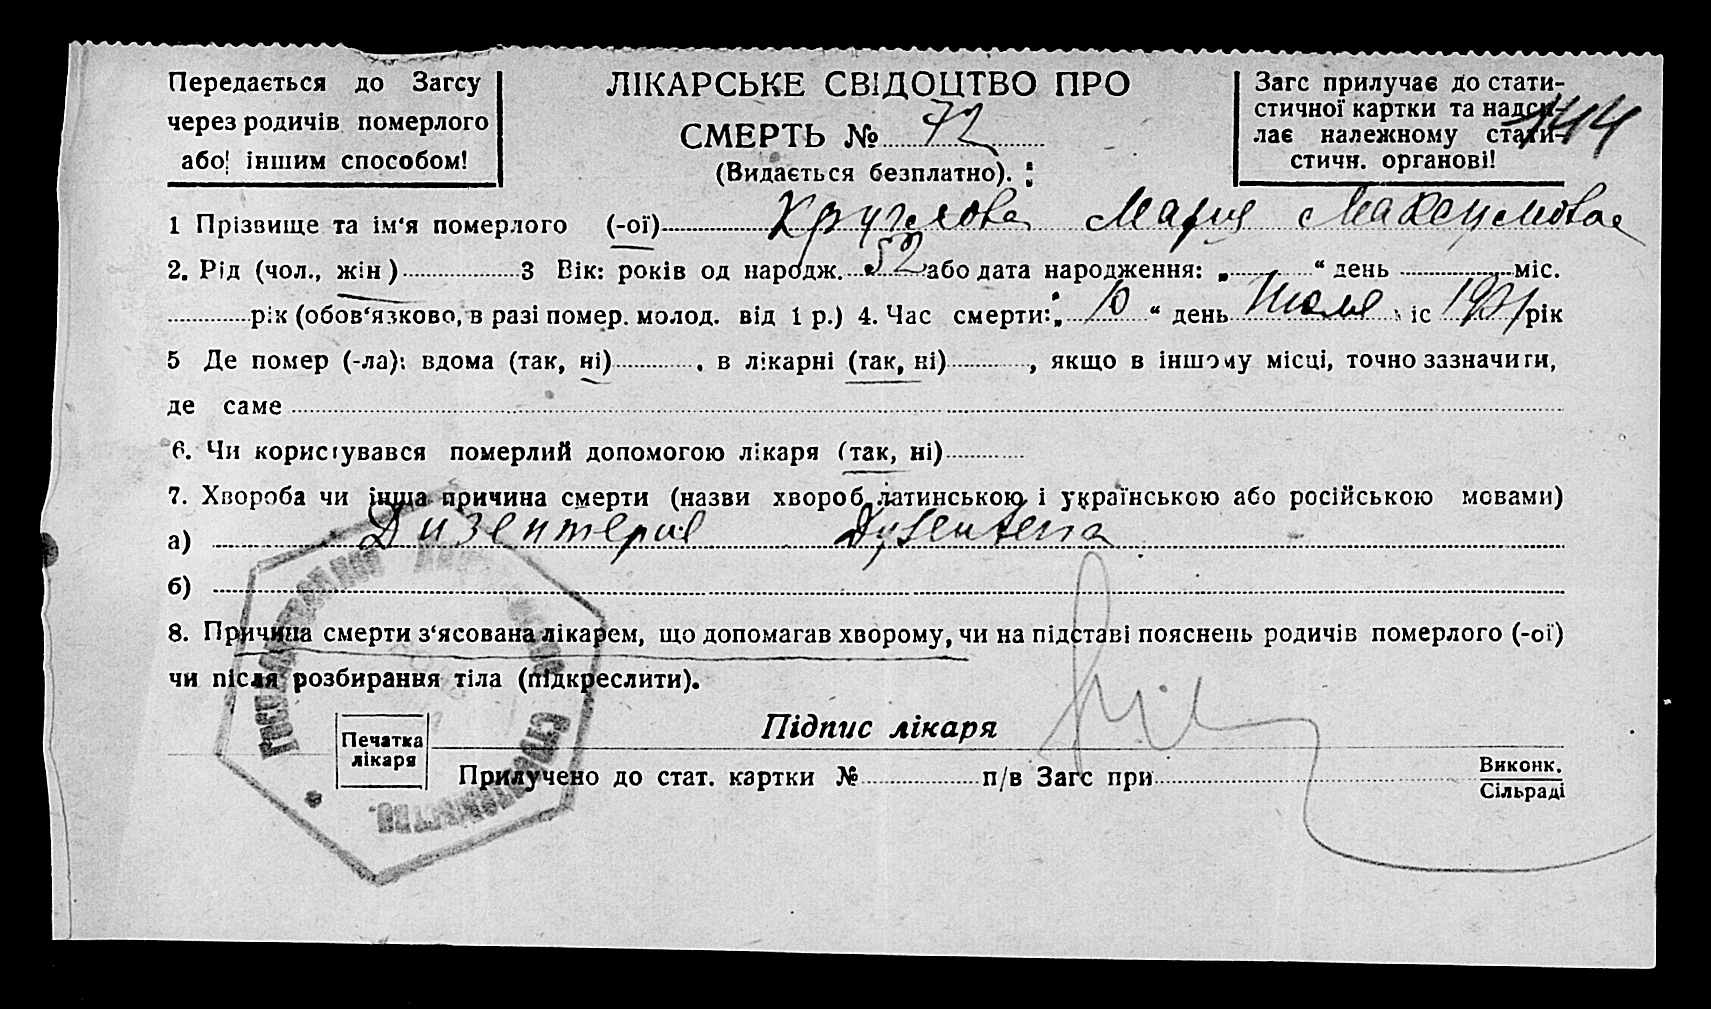 Передається до Загсу
через родичів померлого
або іншим способом!
ЛІКАРСЬКЕ СВІДОЦТВО ПРО
СМЕРТЬ № 72
(Видається безплатно).
Загс прилучає до стати-
стичної картки та надси-
лає належному стати-
стичн. органові!
144
1 Прізвище та ім'я померлого (-ої) Круглова Мария Максимовна
2. Рід (чол., жін) 3 Вік: років од народж. 52 або дата народження: „ “ день міс.
рік (обов'язково, в разі помер. молод. від 1 р.) 4. Час смерти: „ 10 “ день Июля іс рік
5 Де помер (-ла): вдома (так, ні) , в лікарні (так, ні) , якщо в іншому місці, точно зазначити,
де саме
6. Чи користувався померлий допомогою лікаря (так, ні)
7. Хвороба чи інша причина смерти (назви хвороб латинською і українською або російською мовами)
а) Дизентерие Dysenteria
б)
8. Причина смерти з'ясована лікарем, що допомагав хворому, чи на підставі пояснень родичів померлого (-ої)
чи після розбирання тіла (підкреслити).
Підпис лікаря
Печатка
лікаря
Прилучено до стат. картки № п/в Загс при Виконк.
Сільраді